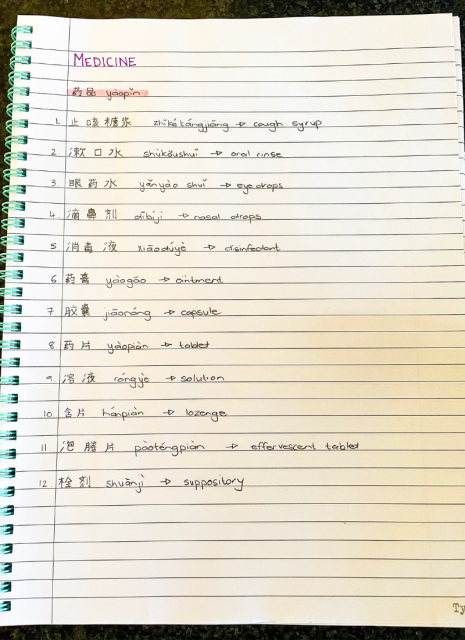 MEDICINE
药品 yàopǐn
1. 止咳糖浆 zhǐkétángjiāng → cough syrup
2 漱口水 shùkǒushuǐ → oral rinse
3 眼药水 yǎnyào shuǐ → eyedrops
4. 滴鼻剂 dībíjì → nasal drops
5 消毒液 xiāodúyè → disinfectant
6 药膏 yàogāo → ointment
7 胶囊 jiāonáng → capsule
8. 药片 yàopiàn → tablet
9. 溶液 róngyè → solution
10 含片 hánpiàn → lozenge
11 泡腾片 pàoténgpiàn → effervescent tablet
12 栓剂 shuānjì → suppository
Ty